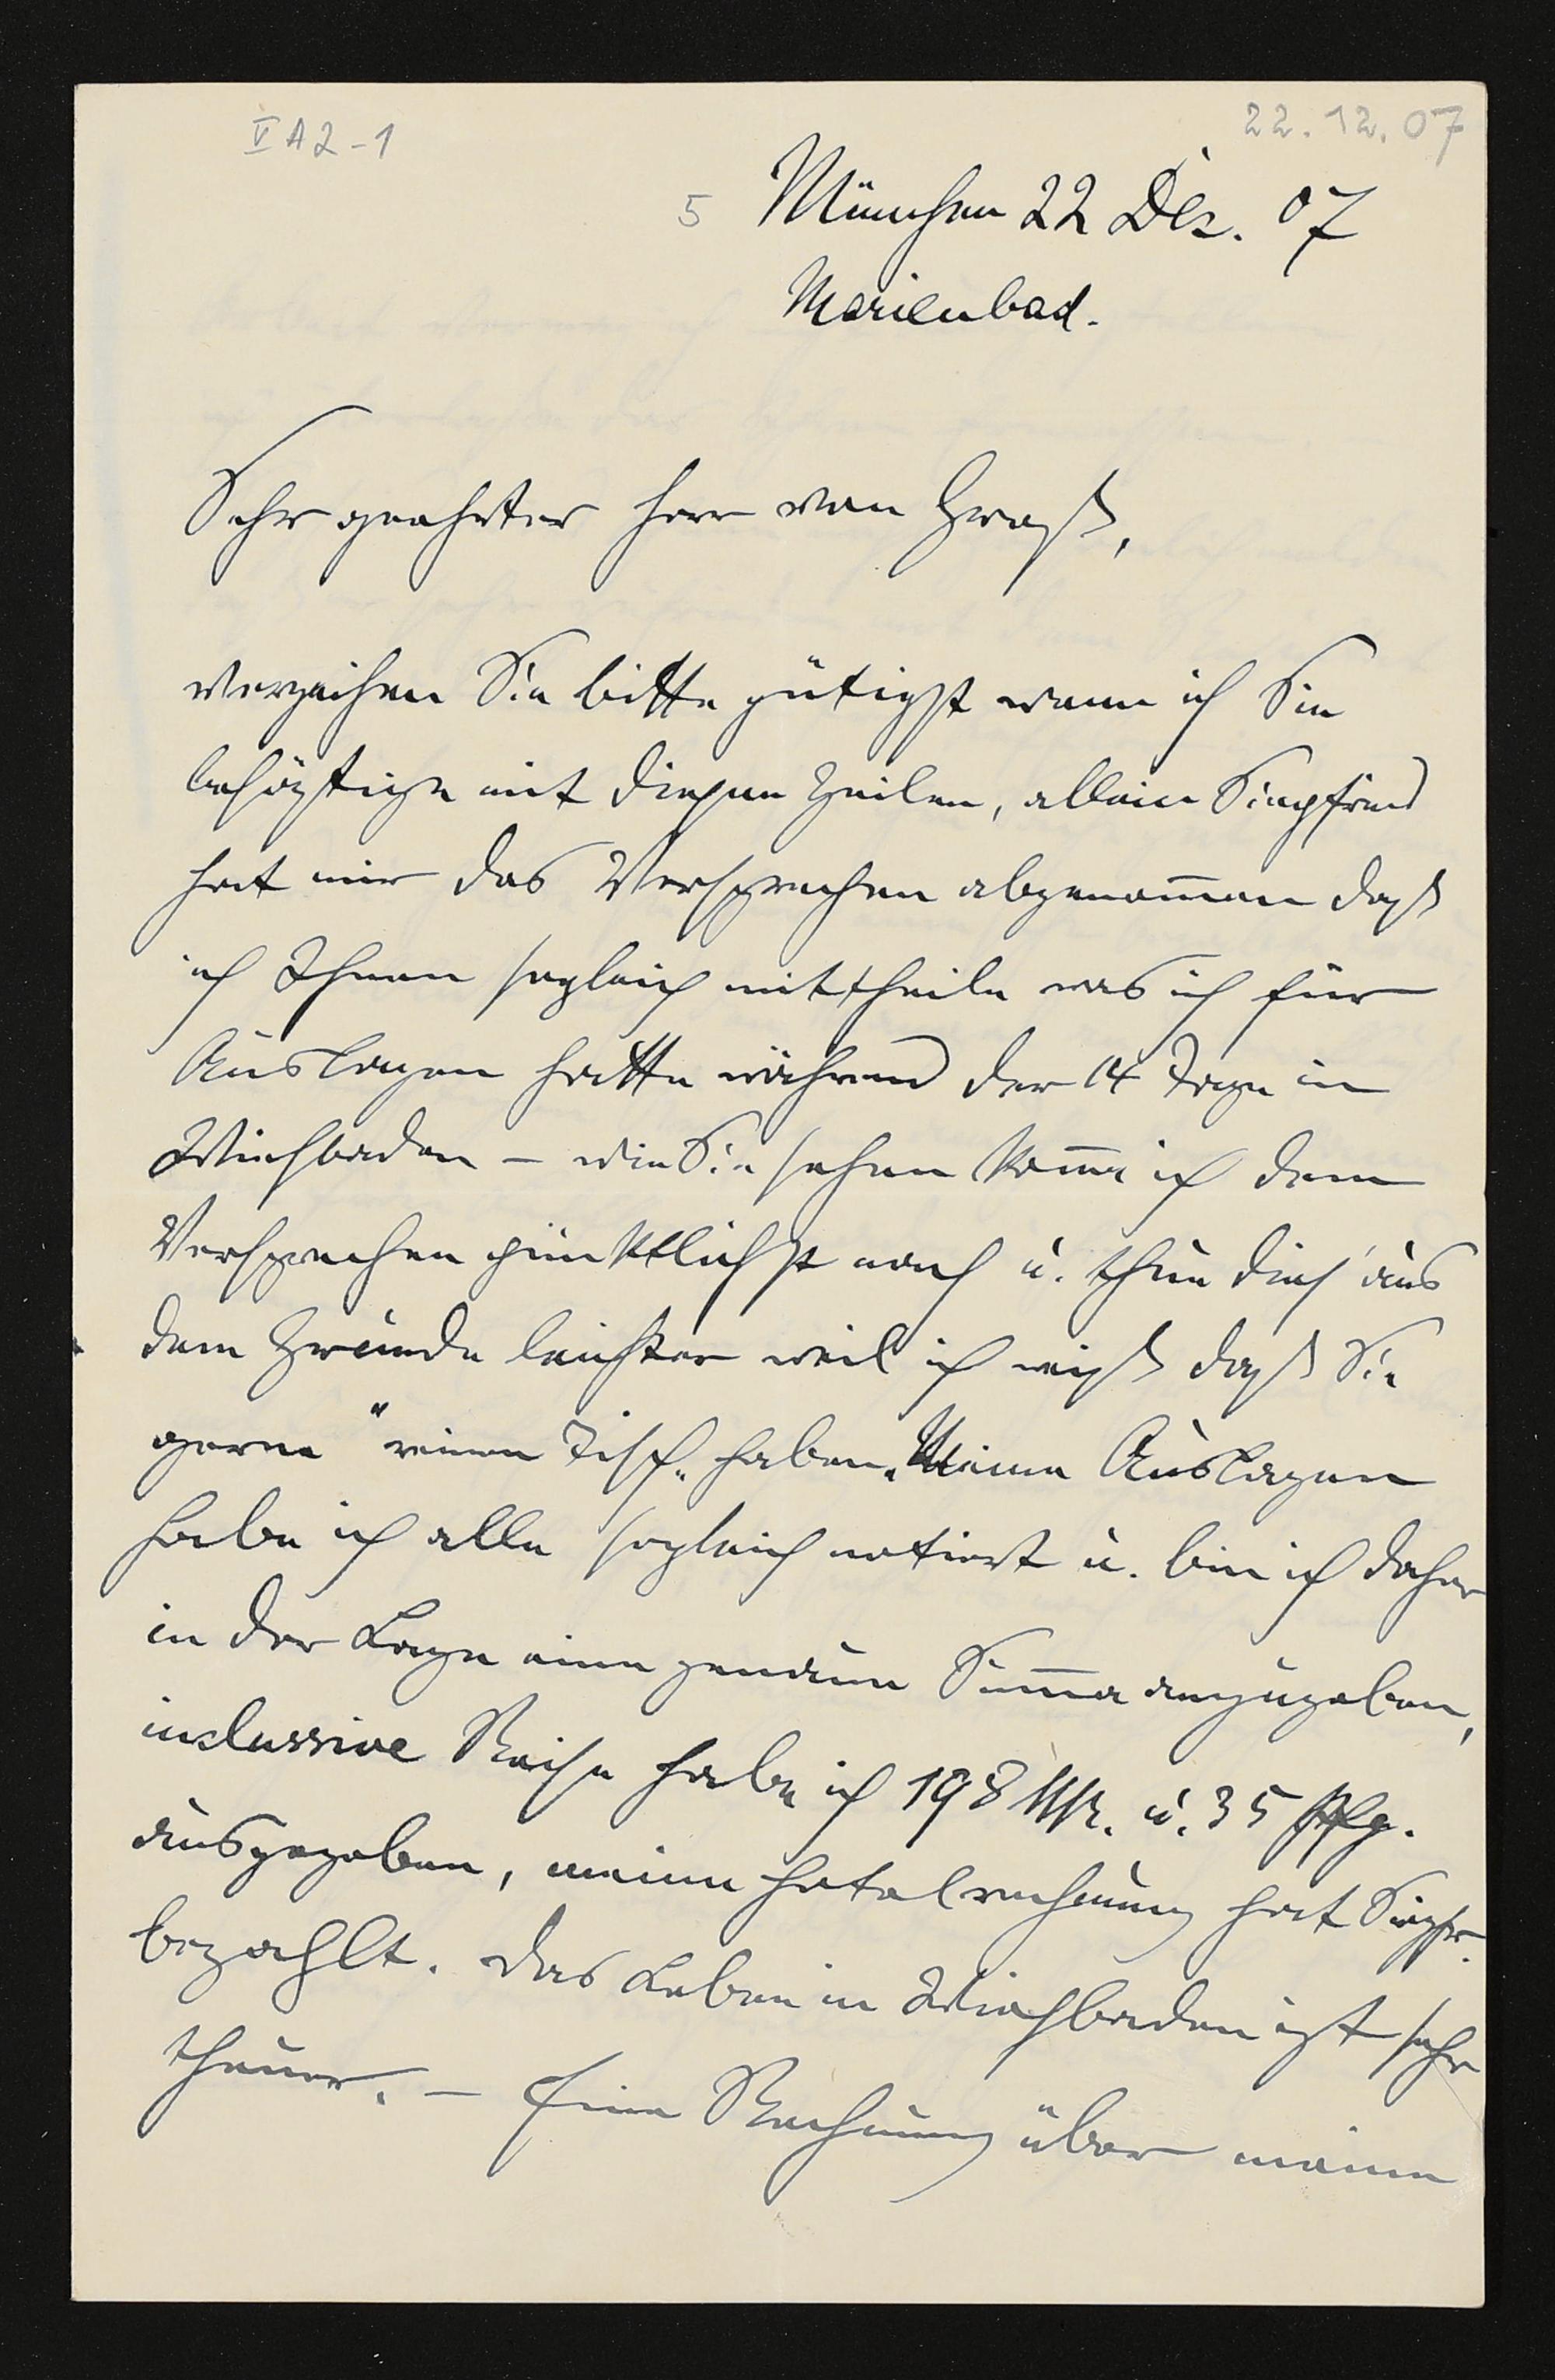 V A 2 - 1
22.12.07
5 München 22 Dez. 07
Marienbad.
Sehr geehrter Herr von Groß,
verzeihen Sie bitte gütigst wenn ich Sie
belästige mit diesen Zeilen, allein Siegfried
hat mir das Versprechen abgenom̅en daß
ich Ihnen sogleich mittheile was ich für
Auslagen hatte während der 14 Tage in
Wiesbaden – wie Sie sehen kom̅e ich dem
Versprechen pünktlichst nach u. thue dies aus
dem Grunde leichter weil ich weiß daß Sie
gerne "reinen Tisch" haben. Meine Auslagen
habe ich alle sogleich notiert u. bin ich daher
in der Lage eine genaue Sum̅a anzugeben,
inclussive Reise habe ich 198 Mk. u. 35 Pfg.
ausgegeben, meine Hotelrechnung hat Siegfr.
bezahlt. Das Leben in Wiesbaden ist sehr
theuer. – Eine Rechnung über meine